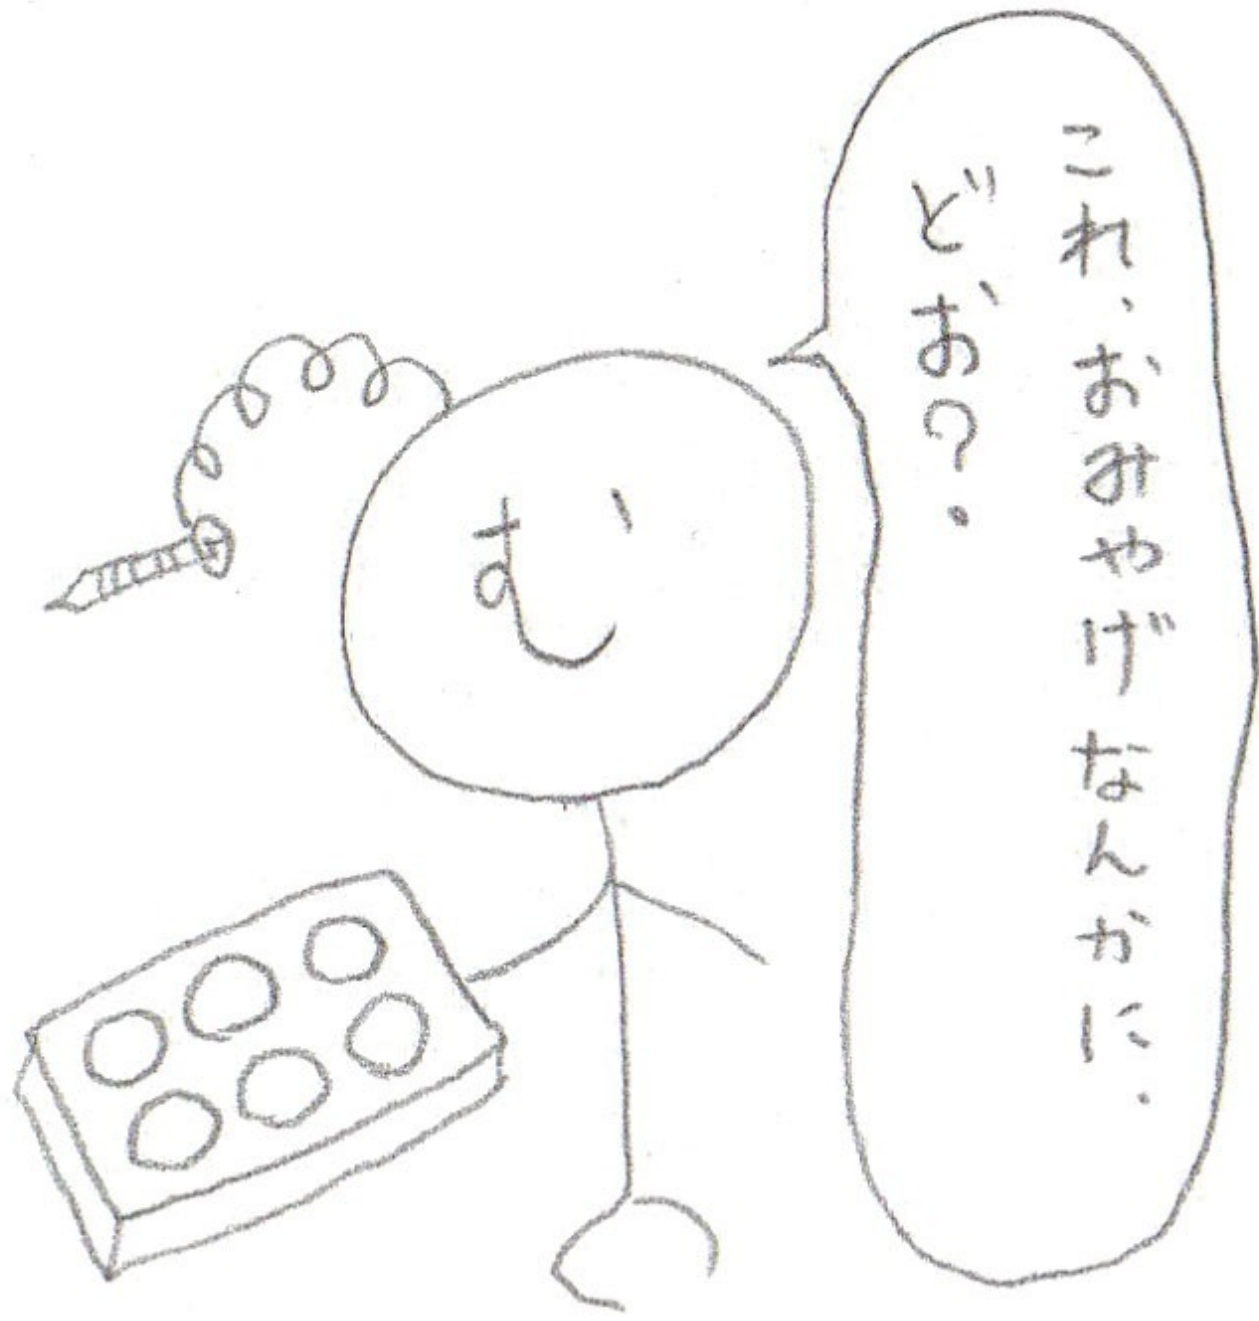 これ、おみやげなんかに.
どお?.
む